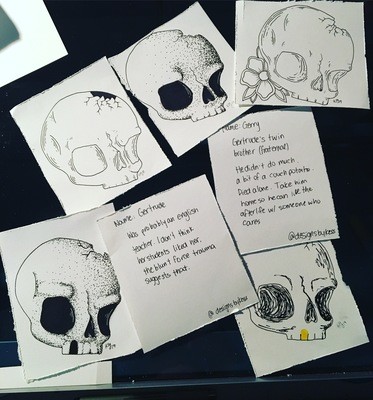 Name: Gertrude
Was probably an english
teacher. I don't think
her students liked her,
the blunt force trauma
suggests that.
@designsbytesa
Name: Gerry
Gertrude's twin
brother (fraternal)
He didn't do much,
a bit of a couch potato.
Died alone. Take him
home so he can live the
afterlife w/ someone who
cares
@designsbytesa